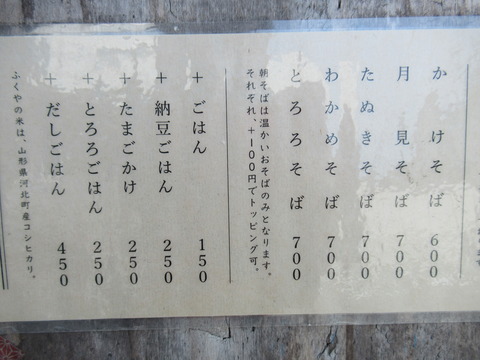 かけそば 600
月見そば 700
たぬきそば 700
わかめそば 700
とろろそば 700
朝そばは温かいおそばのみとなります。
それぞれ、+100円でトッピング可。
+ ごはん 150
+ 納豆ごはん 250
+ たまごかけ 250
+ とろろごはん 250
+ だしごはん 450
ふくやの米は、山形県河北町産コシヒカリ。